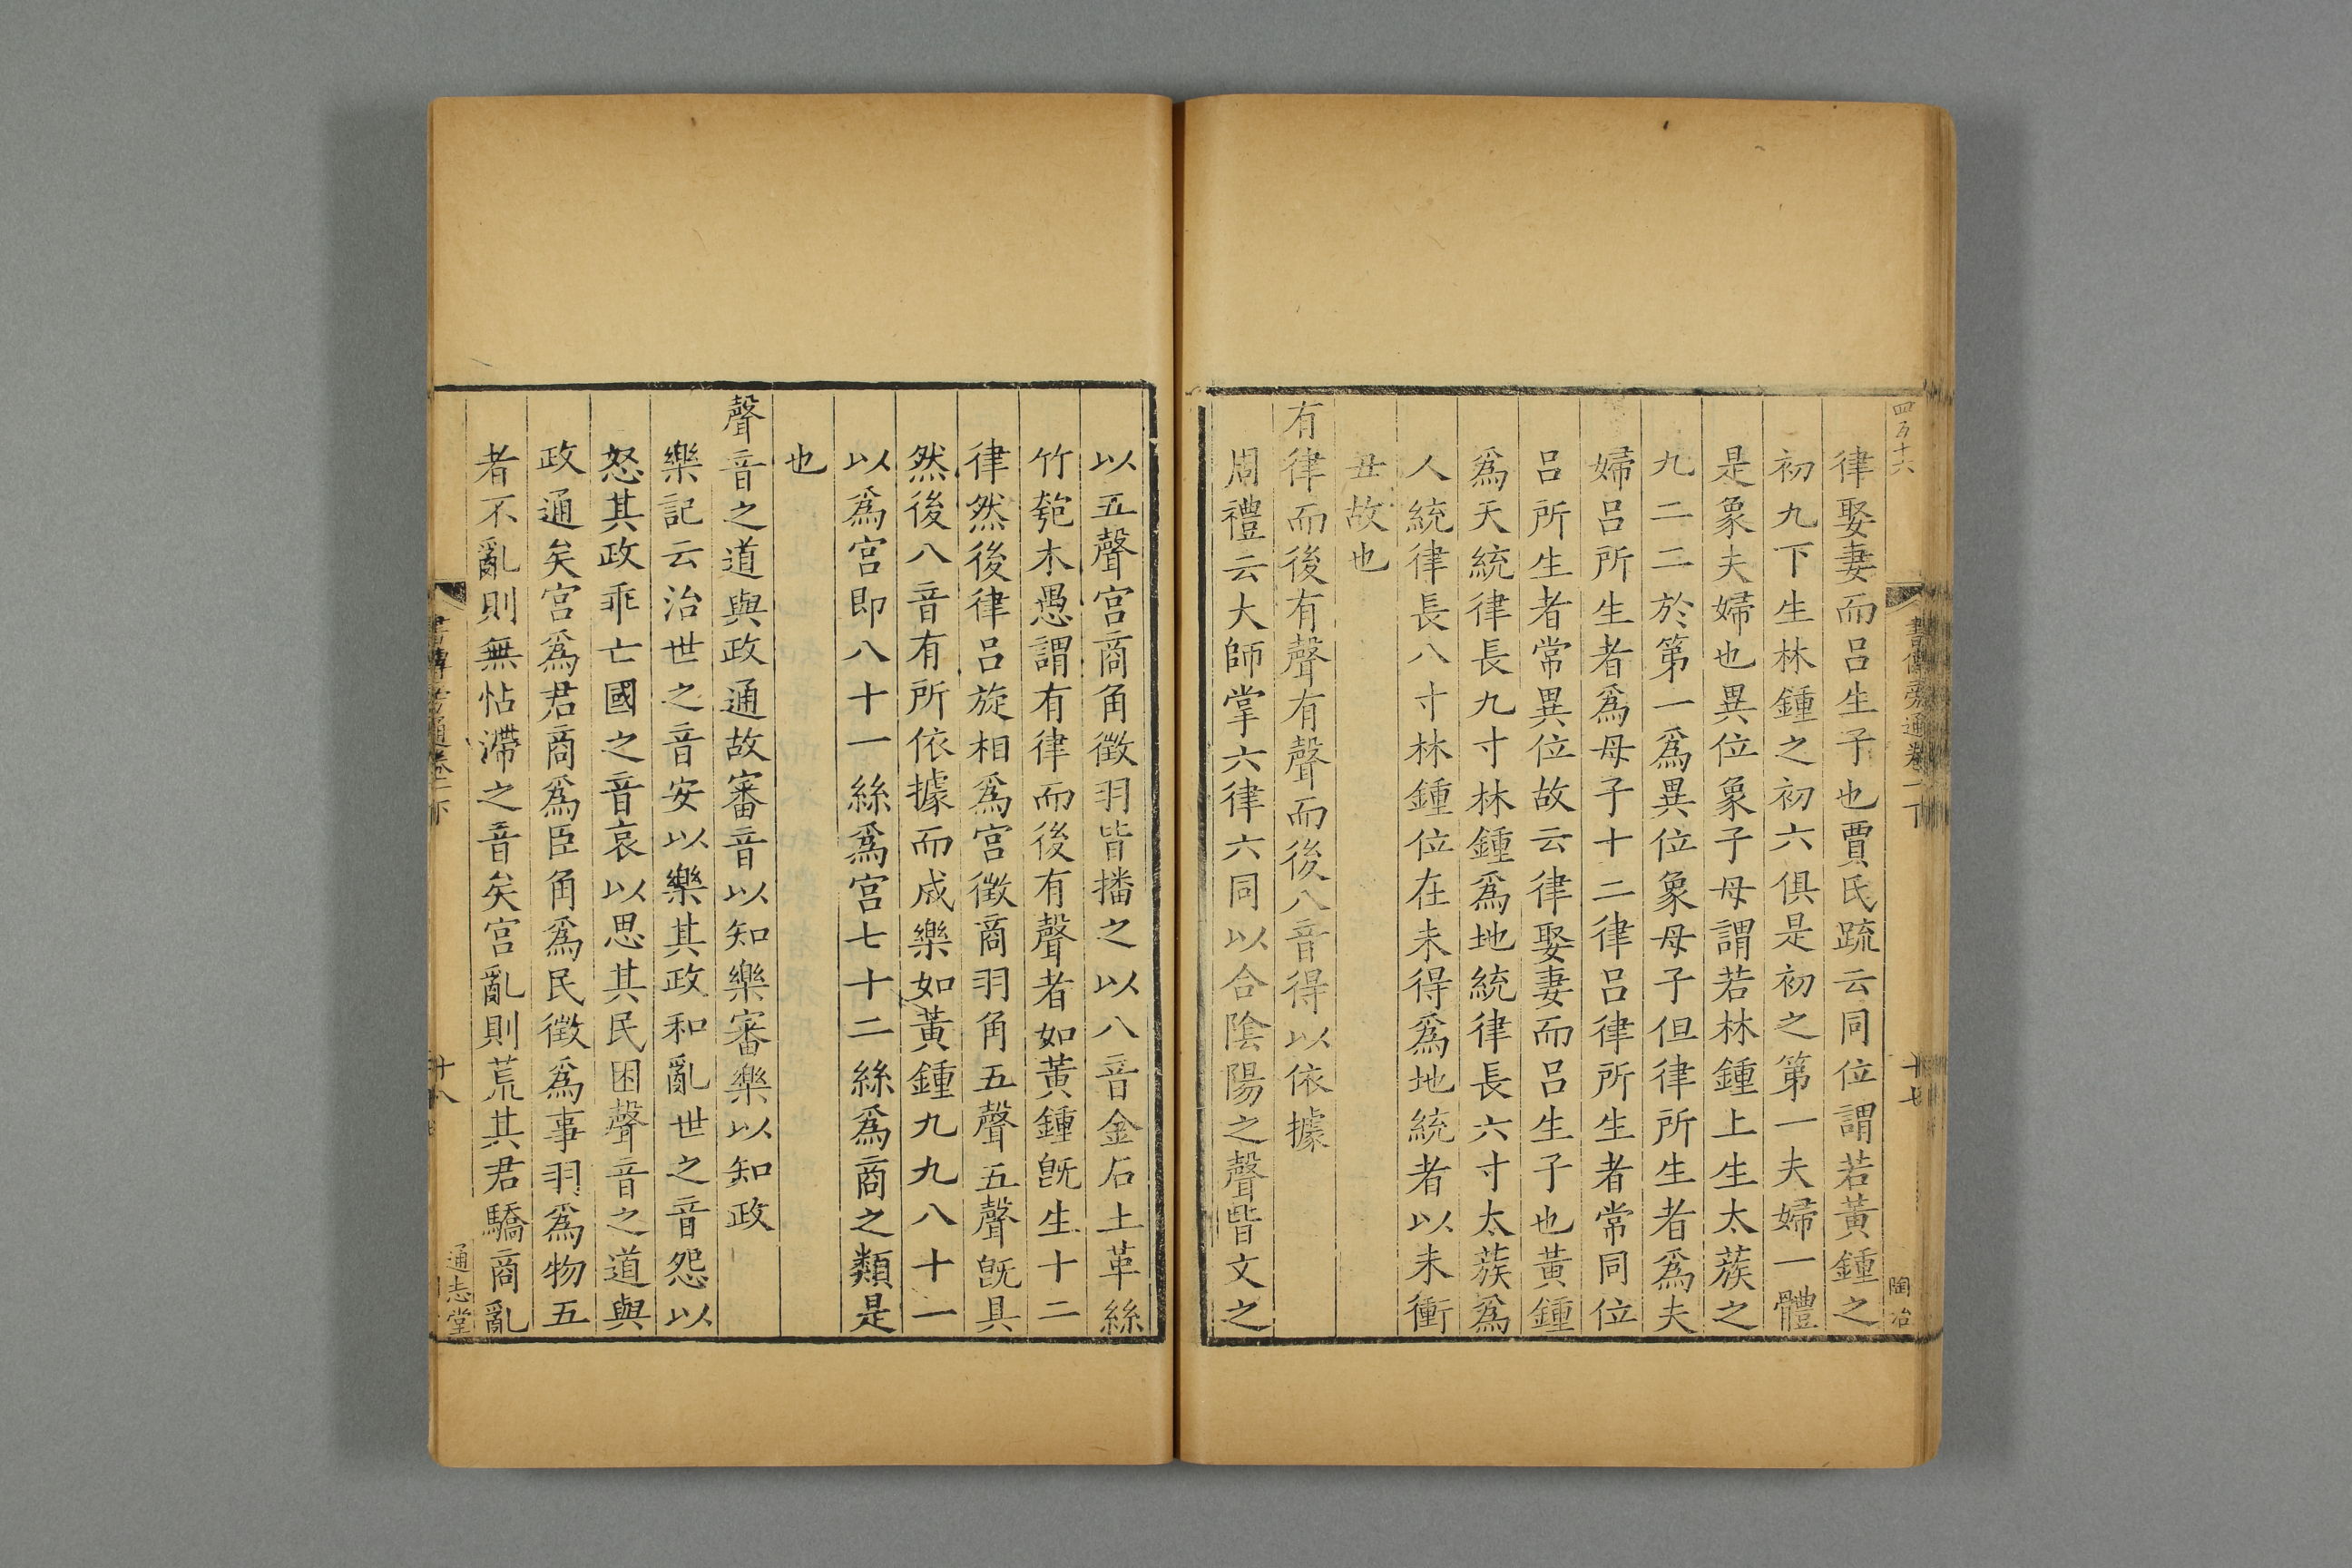 律娶妻而呂生子也賈氏䟽云同位謂若黃鍾之
初九下生林鍾之初六俱是初之第一夫婦一體
是象夫婦也異位象子母謂若林鍾上生太蔟之
九二二於第一爲異位象母子但律所生者爲夫
婦呂所生者爲母子十二律呂律所生者常同位
呂所生者常異位故云律娶妻而呂生子也黃鍾
爲天統律長九寸林鍾爲地統律長六寸太蔟爲
人統律長八寸林鍾位在未得爲地統者以未衝
丑故也
有律而後有聲有聲而後八音得以依據
周禮云大師掌六律六同以合陰陽之聲皆文之
以五聲宮商角徵羽皆播之以八音金石土革絲
竹匏木愚謂有律而後有聲者如黃鍾旣生十二
律然後律呂旋相爲宮徵商羽角五聲五聲旣具
然後八音有所依據而成樂如黃鍾九九八十一
以爲宮即八十一絲爲宮七十二絲爲商之類是
也
聲音之道與政通故審音以知樂審樂以知政
樂記云治世之音安以樂其政和亂世之音怨以
怒其政乖亡國之音哀以思其民困聲音之道與
政通矣宮爲君商爲臣角爲民徵爲事羽爲物五
者不亂則無怗滯之音矣宮亂則荒其君驕商亂
書傳旁通卷一下
十七
陶冶
十八
通志堂